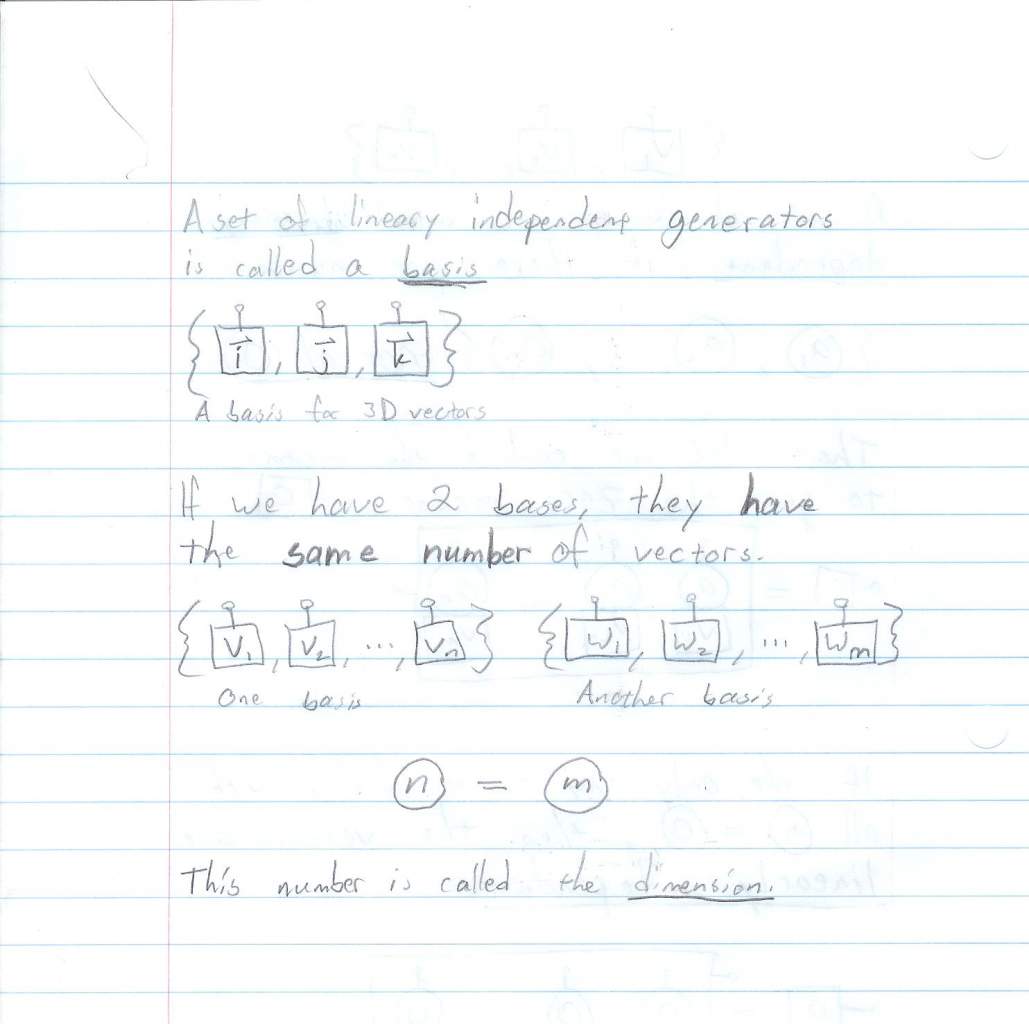 A set of lineary independent generators
is called a basis
{ i⃗ , j⃗ , k⃗ }
A basis for 3D vectors
If we have 2 bases, they have
the same number of vectors.
{ V₁ , V₂ , ... , Vₙ } { W₁ , W₂ , ... , Wₘ }
One basis Another basis
n = m
This number is called the dimension.